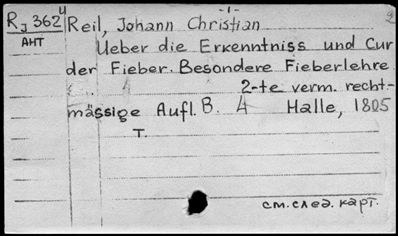 -1-
R J 362 4 Reil, Johann Christian
АНТ
Ueber die Erkenntniss und Cur
der Fieber. Besondere Fieberlehre
2-te verm. recht-
mässige Aufl. B. 4 Halle, 1805
T.
см. след. карт.